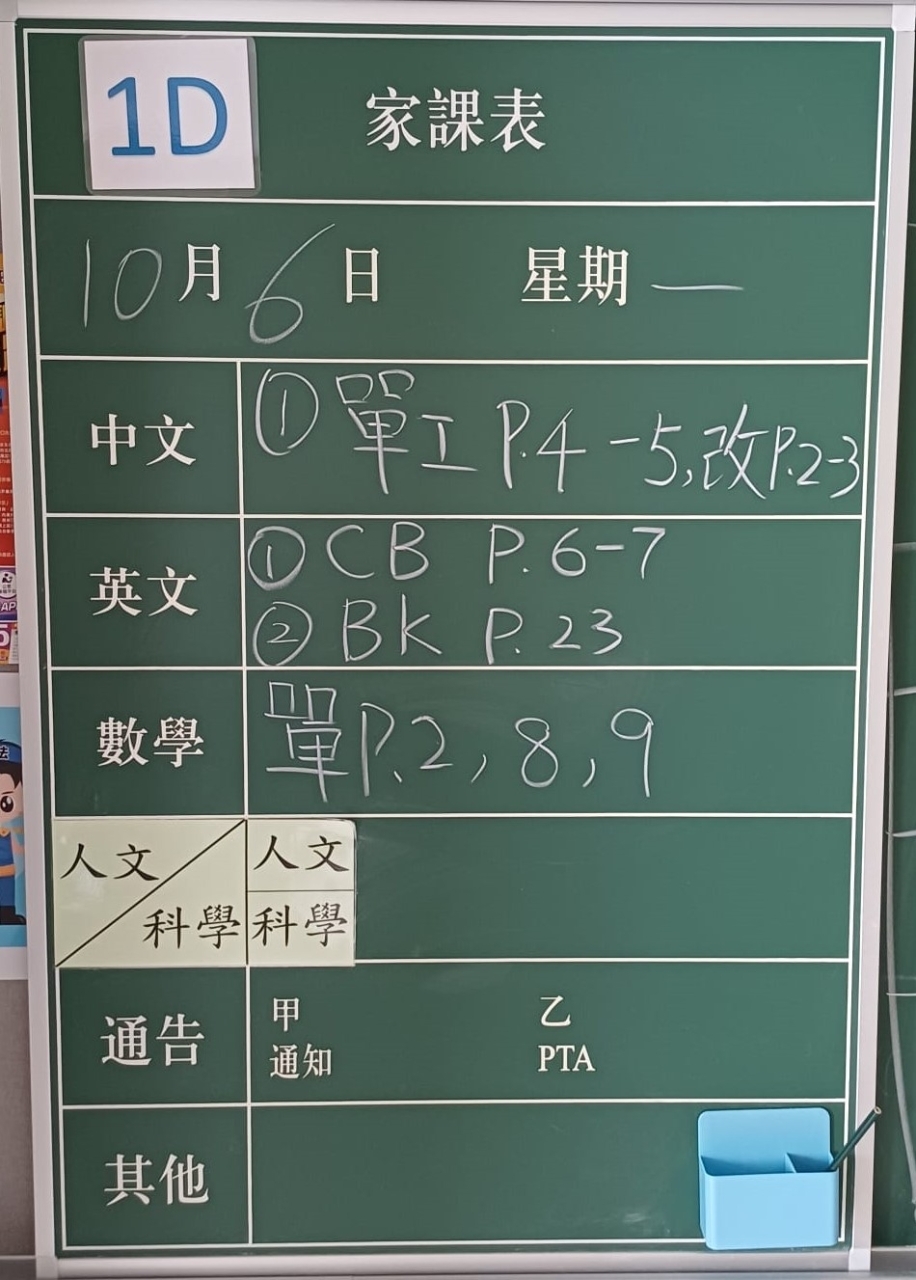 1D 家課表
10月6日 星期一
中文 ①單工 P.4-5,改P.2-3
英文 ①CB P.6-7
②BK P.23
數學 單P.2,8,9
人文 人文
科學 科學
通告 甲 乙
通知 PTA
其他